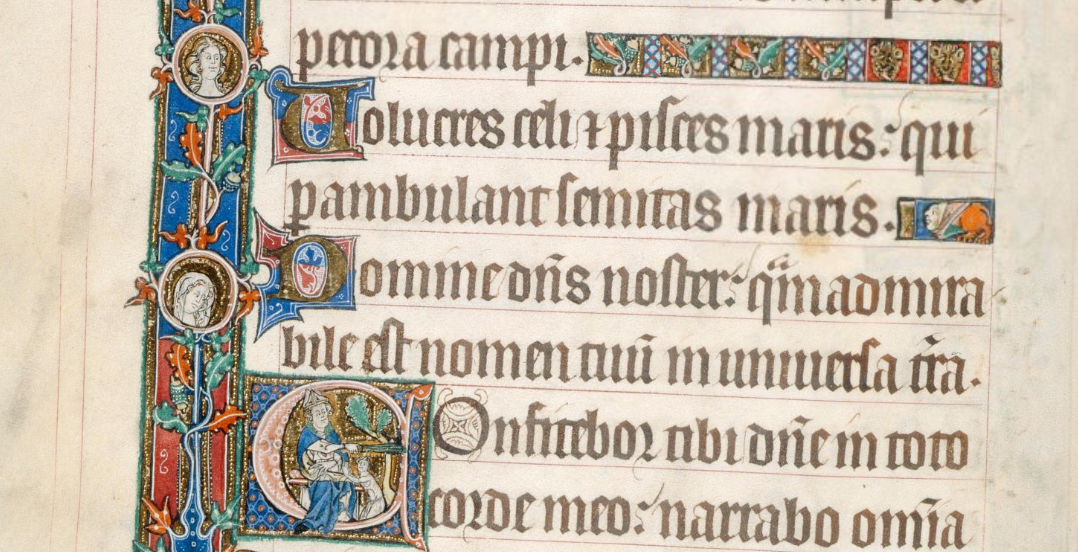 pecora campi.
Uolucres celi ⁊ pisces maris: qui
pambulant semitas maris.
Domine dn̄s noster: qͣm admira
bile est nomen tuū in uniuersa tr̄a.
COnfitebor tibi dn̄e in toto
corde meo: narrabo om̄ia